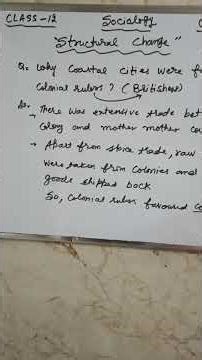 CLASS-12 Sociology
"Structural Change"
Q:- Why Coastal cities were
Colonial rulers? (Britishers)
As:- There was extensive trade bet
Colony and mother mother
→ Apart from spice trade, raw
were taken from colonies and
goods shipped back
So, colonial rulers favoured